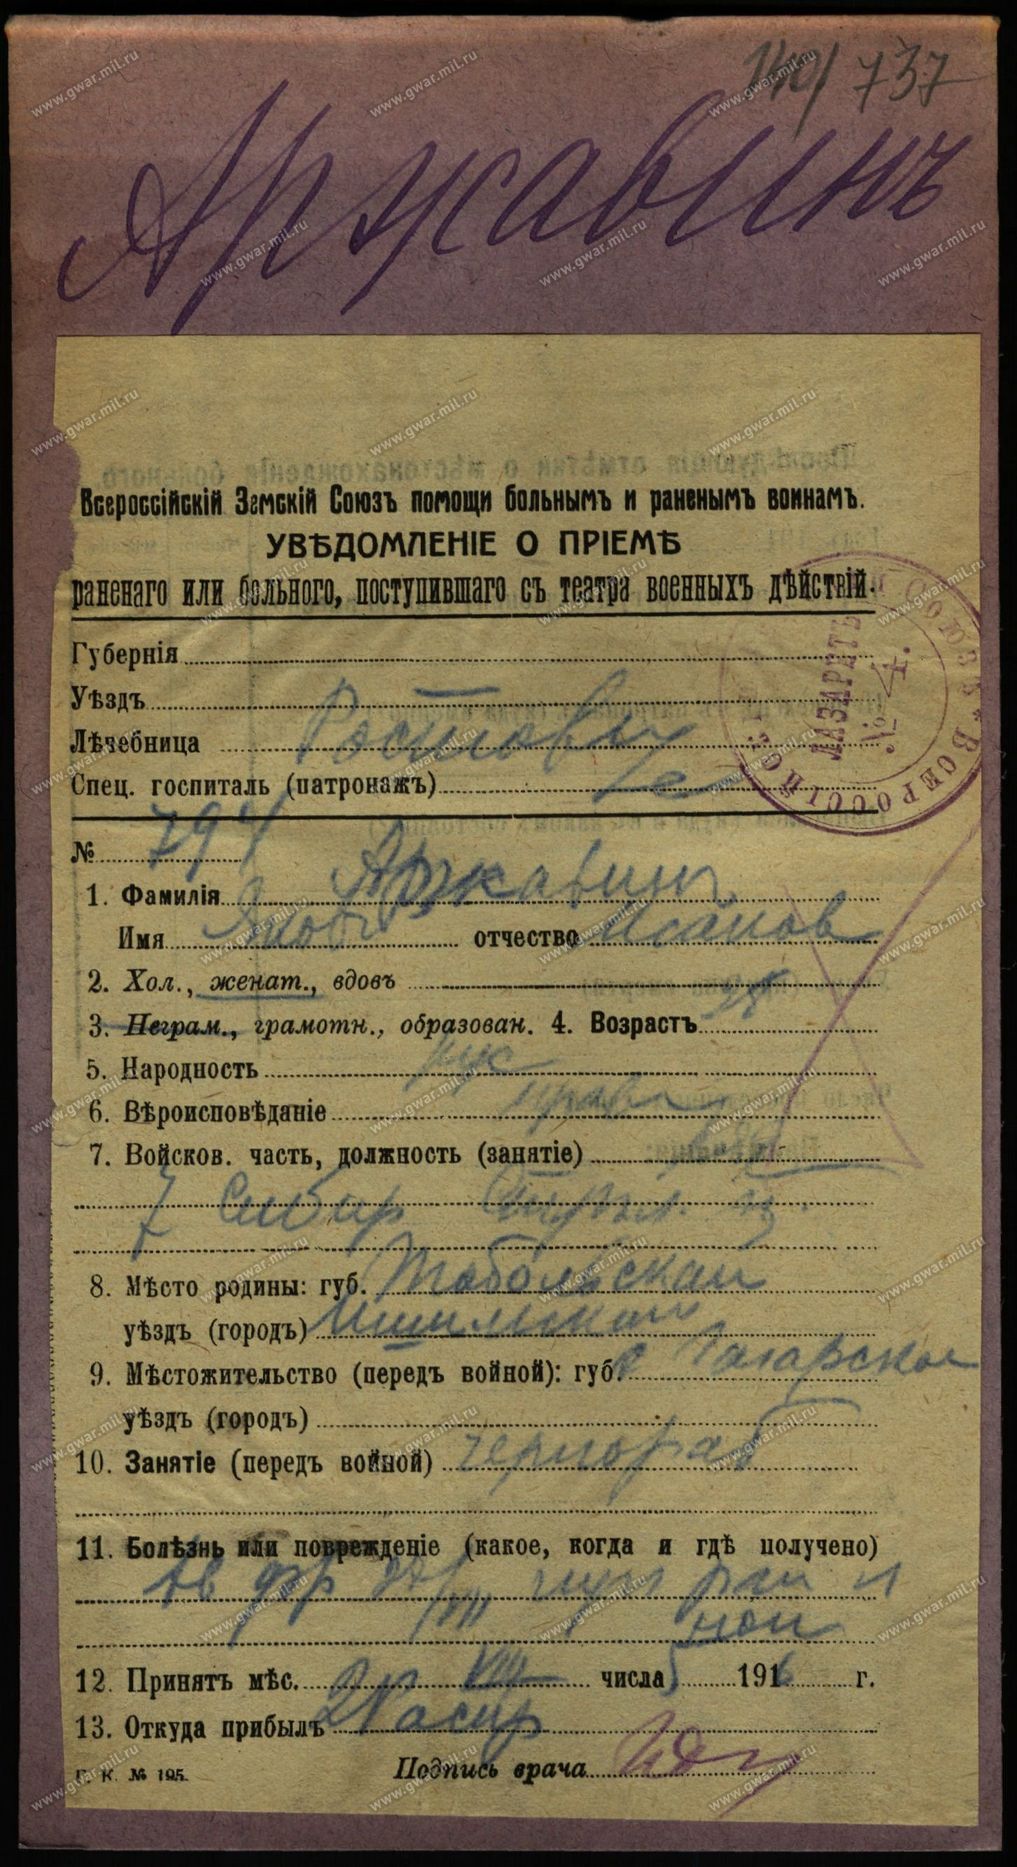 140/737
Аржавинъ
Всероссійскій Земскій Союзъ помощи больнымъ и раненымъ воинамъ.
УВѢДОМЛЕНІЕ О ПРІЕМѢ
раненаго или больного, поступившаго съ театра военныхъ дѣйствій.
Губернія
Уѣздъ
Лѣчебница Ростовъ
Спец. госпиталь (патронажъ)
ВСЕРОССІЙСК СОЮЗЪ
ЛАЗАРЕТЪ
№ 4.
№ 794
1. Фамилія Аржавинъ
Имя Яковъ отчество Исаков
2. Хол., женат., вдовъ
3. Неграм., грамотн., образован. 4. Возрастъ
5. Народность рус
6. Вѣроисповѣданіе прав
7. Войсков. часть, должность (занятіе) ряд
7 Сибир
8. Мѣсто родины: губ. Тобольская
уѣздъ (городъ) Ишимскаго
9. Мѣстожительство (передъ войной): губ.
уѣздъ (городъ)
10. Занятіе (передъ войной) чернораб
11. Болѣзнь или поврежденіе (какое, когда и гдѣ получено)
27/VII
12. Принятъ мѣс. VIII числа 5 1916 г.
13. Откуда прибылъ
Г. К. № 195. Подпись врача
www.gwar.mil.ru